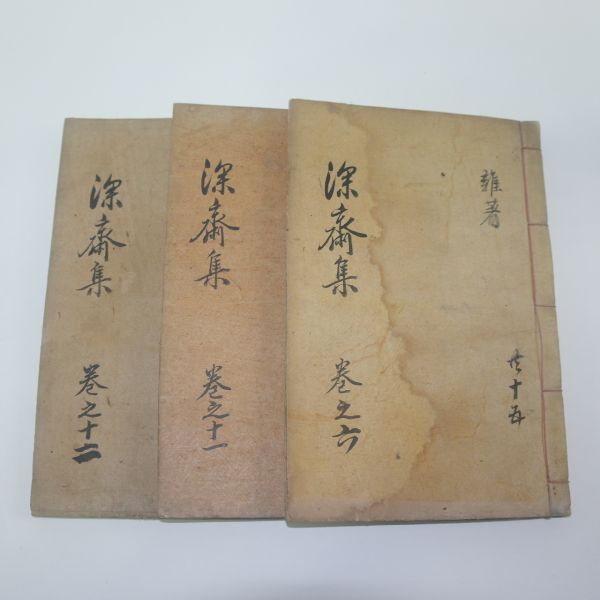 雜著
共十五
深齋集
卷之六
深齋集
卷之十一
深齋集
卷之十二